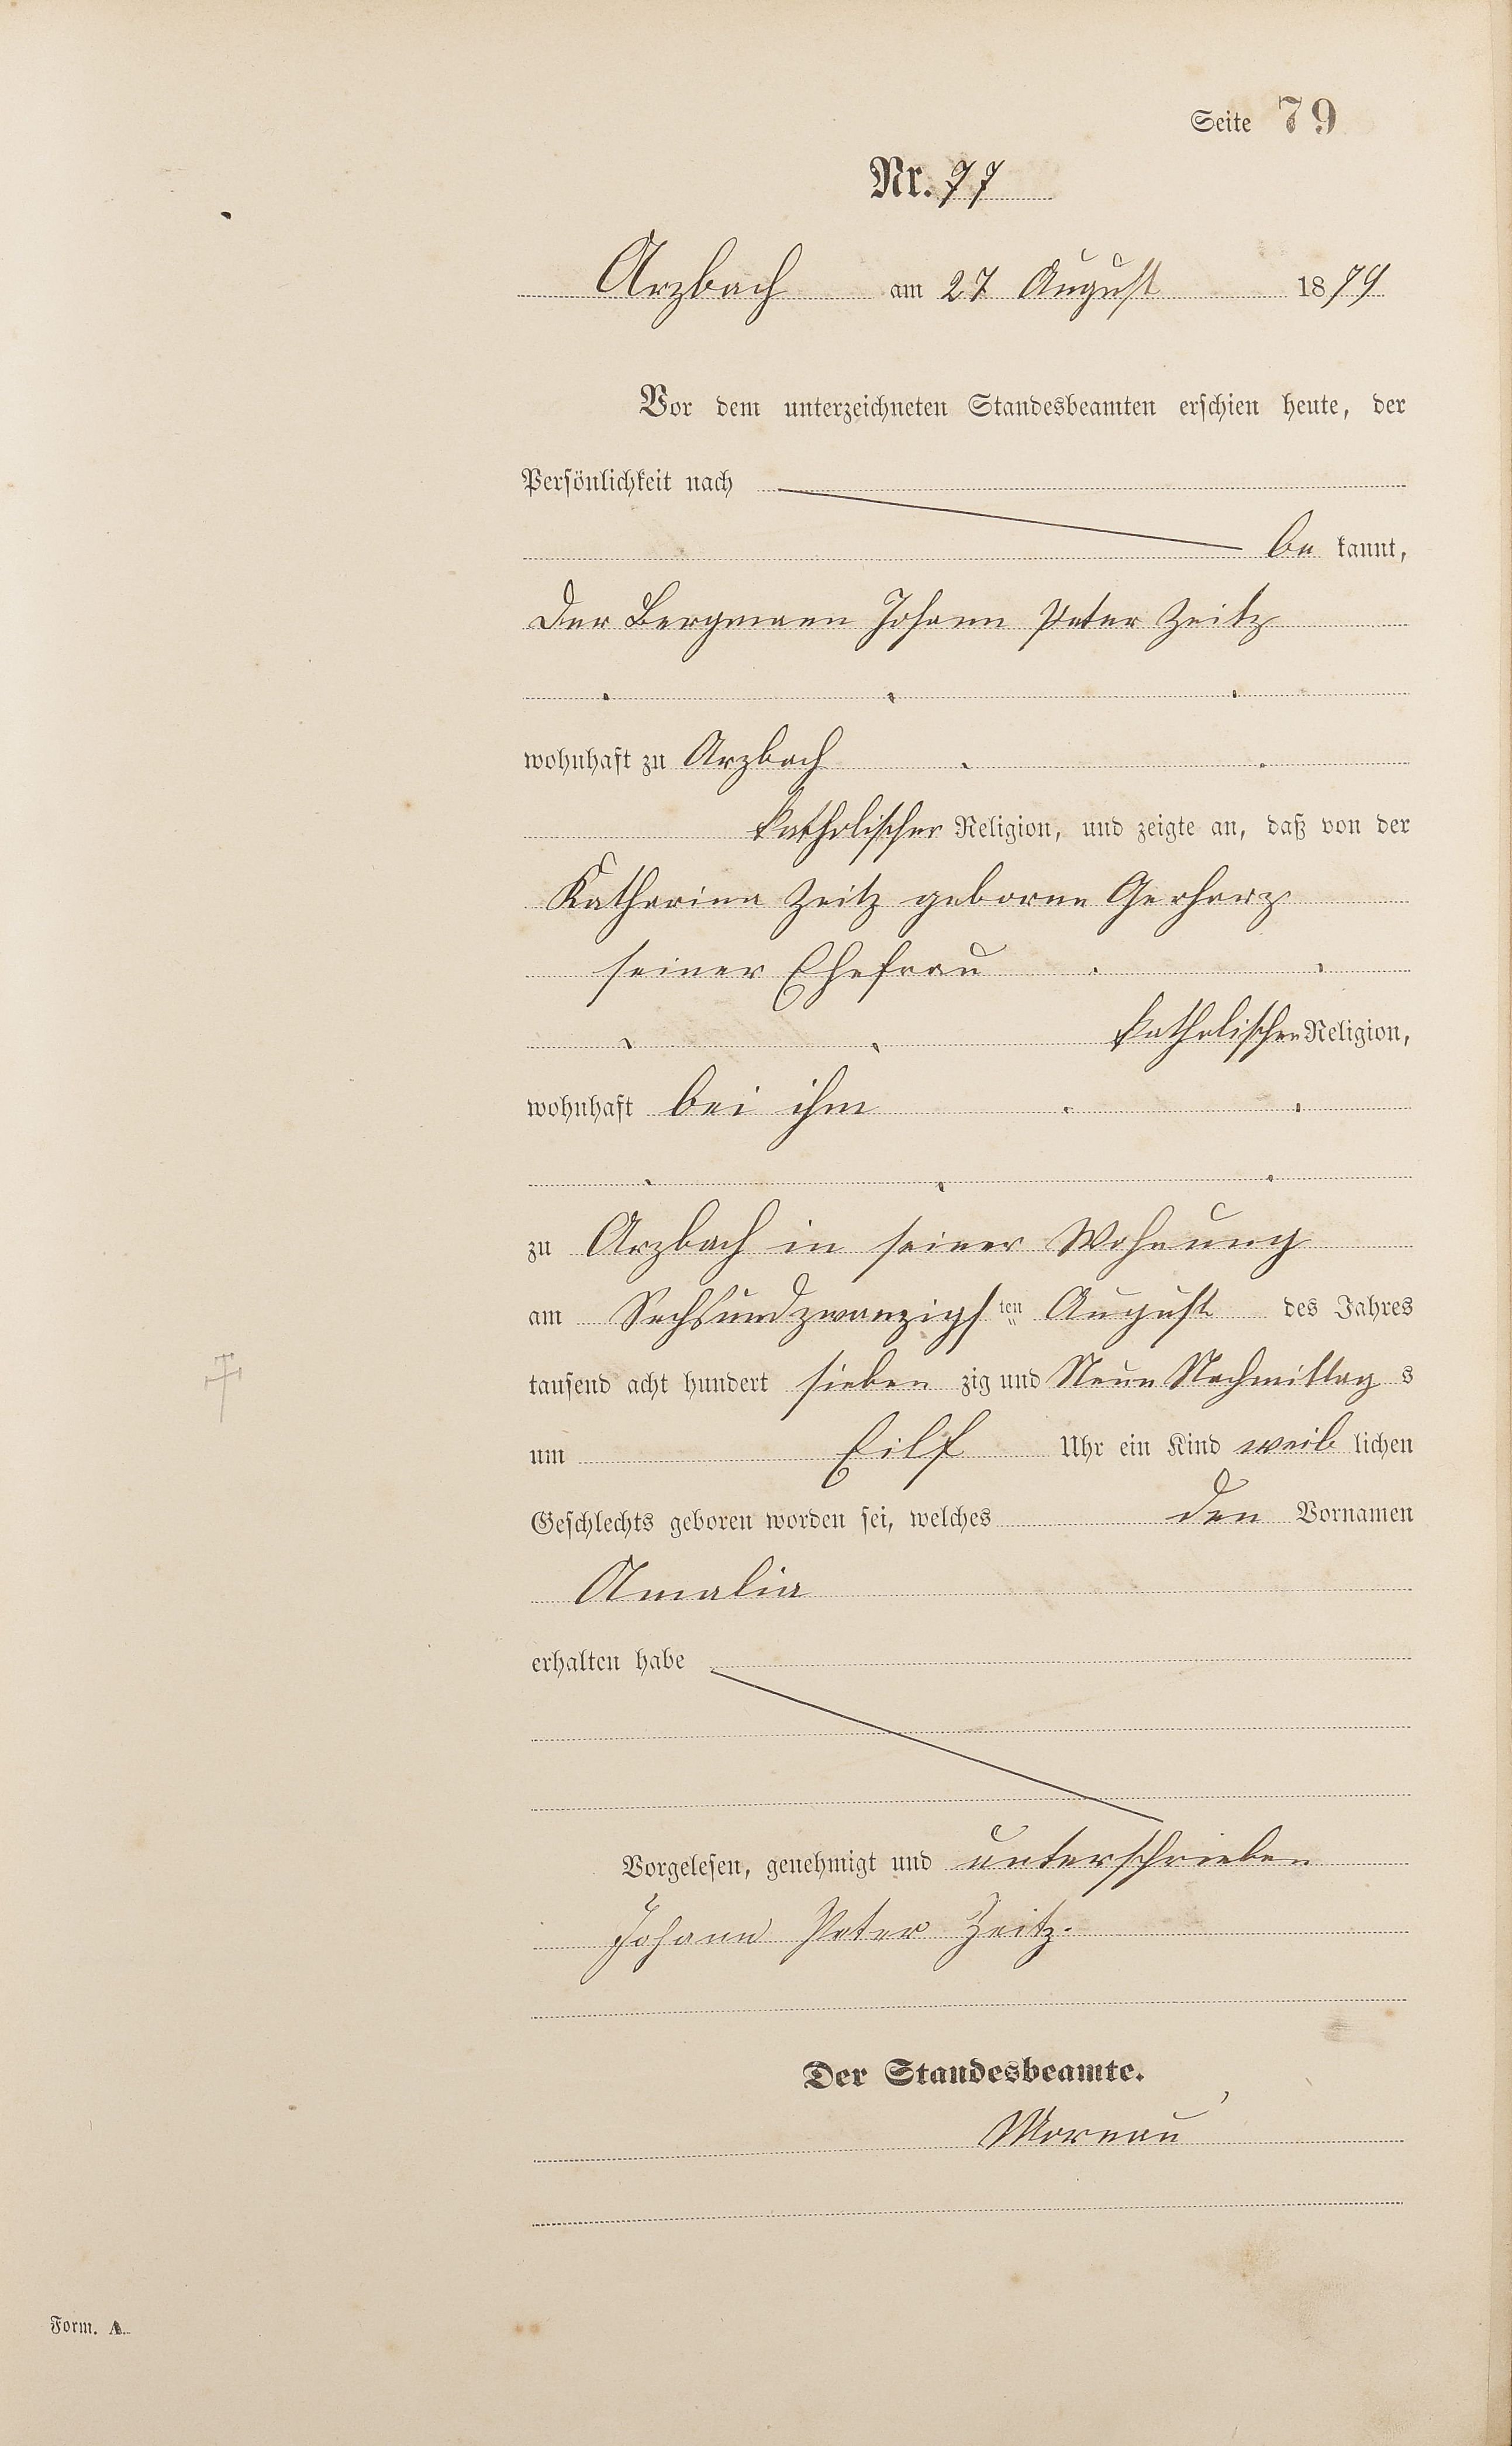 Seite 79
Nr. 77
Arzbach am 27 August 1879
Vor dem unterzeichneten Standesbeamten erschien heute, der
Persönlichkeit nach
be kannt,
der Bergmann Johann Peter Zeitz
wohnhaft zu Arzbach
katholischer Religion, und zeigte an, daß von der
Katharina Zeitz geborne Gerharz
seiner Ehefrau
katholischer Religion,
wohnhaft bei ihm
zu Arzbach in seiner Wohnung
am Sechsundzwanzigs ten August des Jahres
tausend acht hundert sieben zig und Neun Nachmittag s
um Eilf Uhr ein Kind weib lichen
Geschlechts geboren worden sei, welches den Vornamen
Amalia
erhalten habe
Vorgelesen, genehmigt und unterschrieben
Johann Peter Zeitz.
Der Standesbeamte.
Moreau
Form. A.